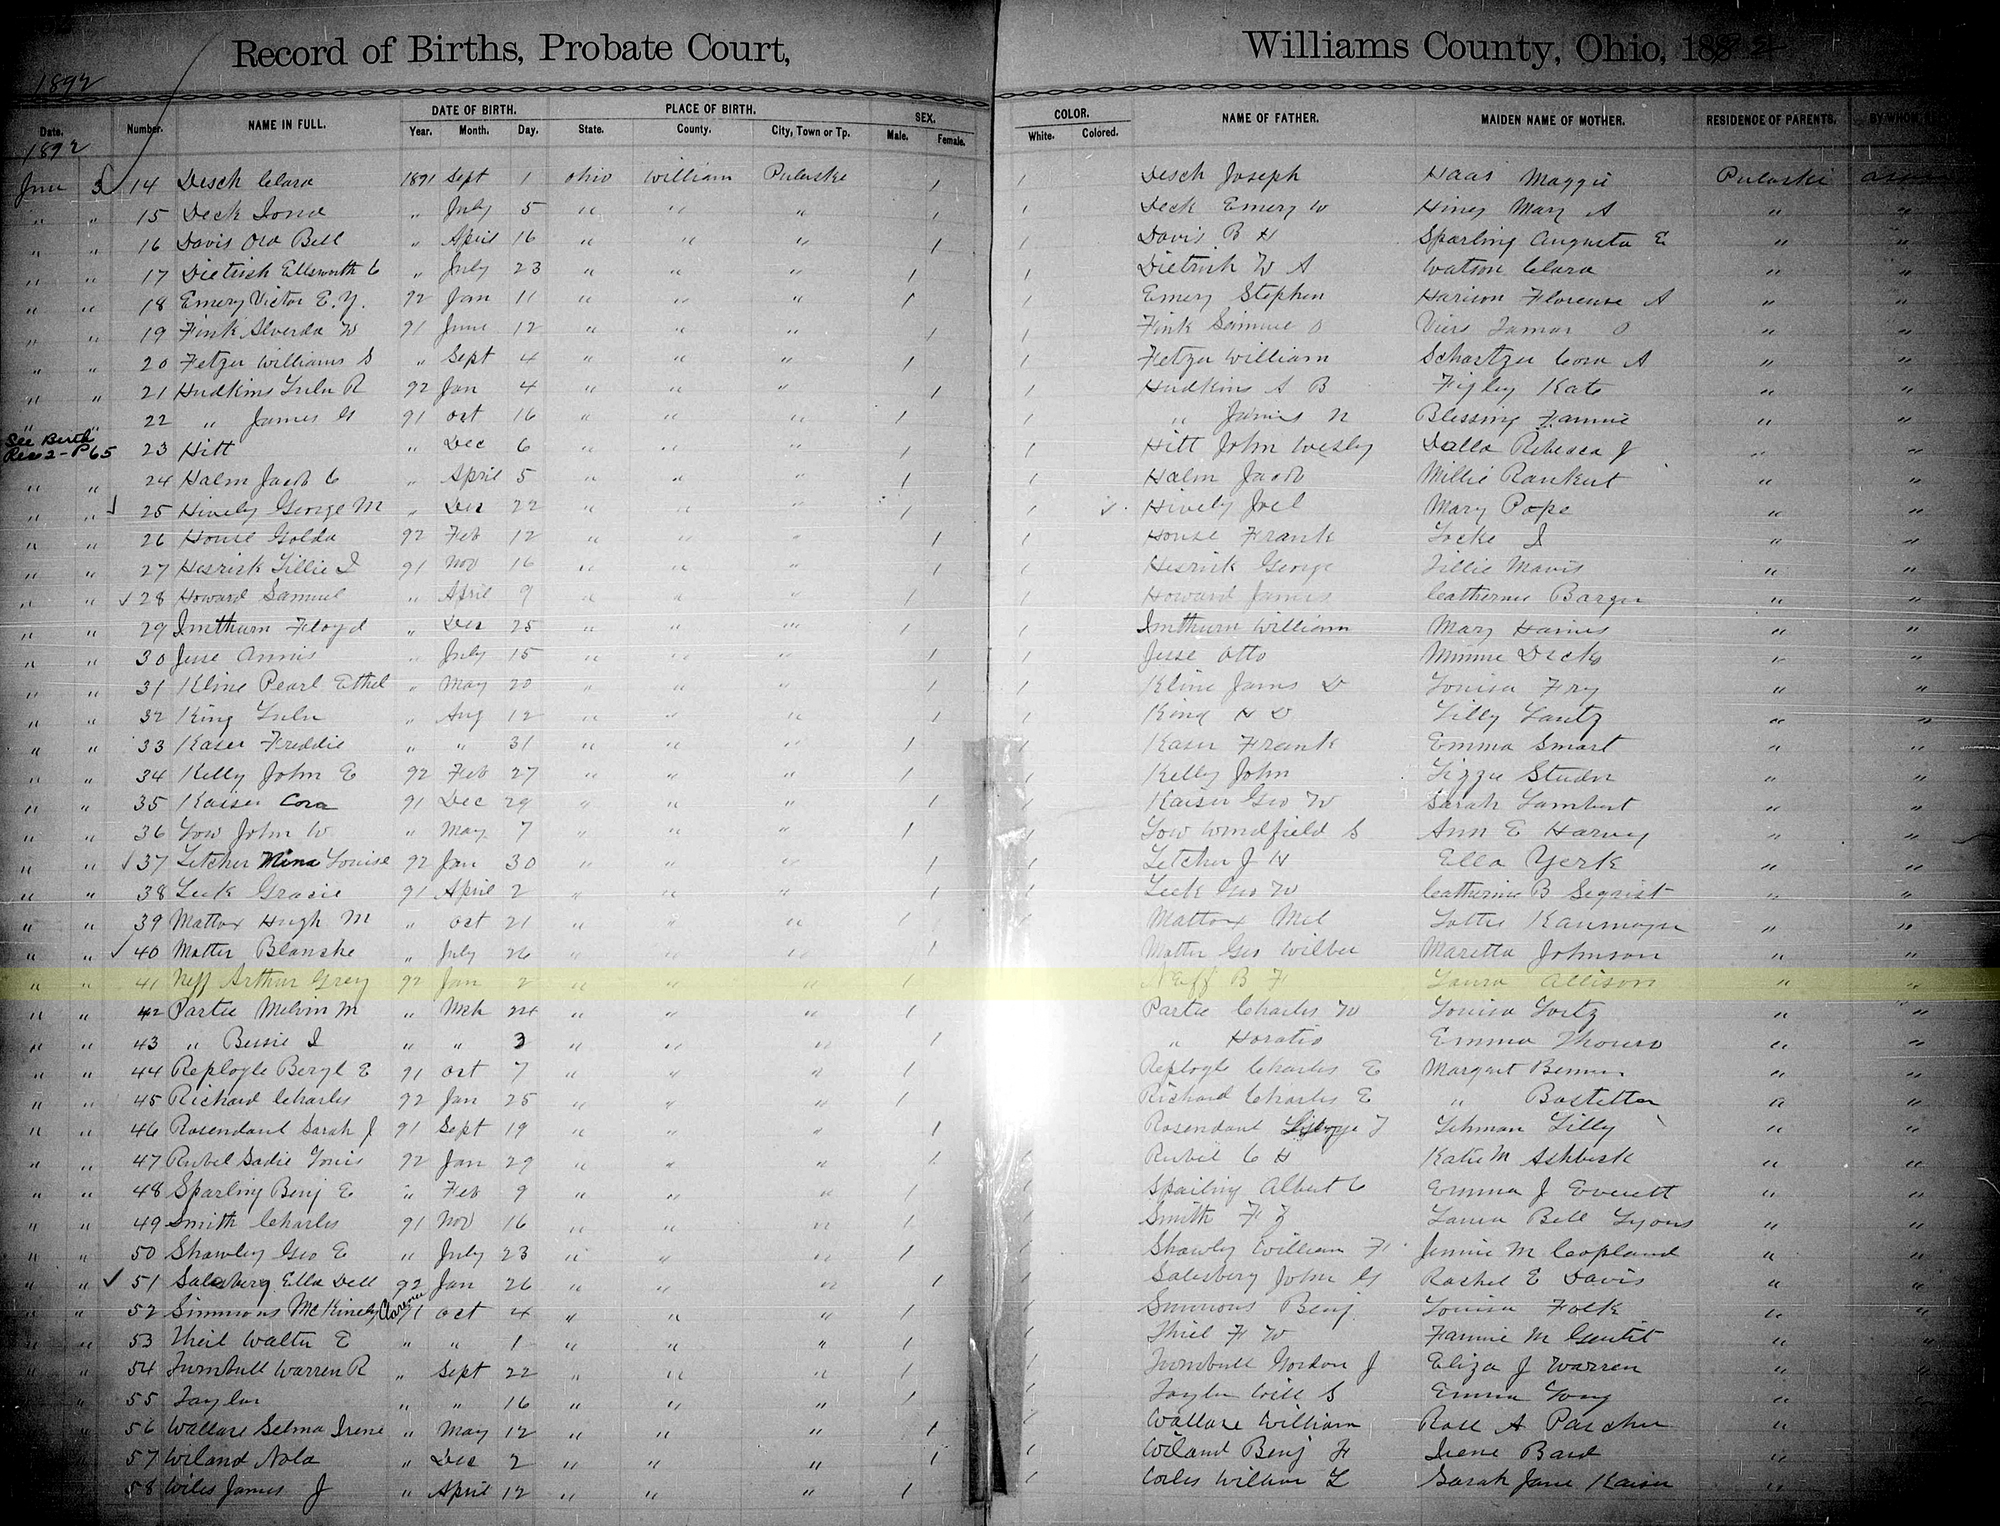 Record of Births, Probate Court, Williams County, Ohio, 18
1892
Date. Number. NAME IN FULL. DATE OF BIRTH. Year. Month. Day. PLACE OF BIRTH. State. County. City, Town or Tp. SEX. Male. Female. COLOR. White. Colored. NAME OF FATHER. MAIDEN NAME OF MOTHER. RESIDENCE OF PARENTS.
1892
June 3 14 Desch Clara 1891 Sept 1 Ohio William Pulaske 1 1 Desch Joseph Haas Maggie Pulaski
" " 15 Deck " July 5 " " " 1 1 Deck Emery W Hiney Mary A " "
" " 16 Davis Ora Bell " April 16 " " " 1 1 Davis B H Sparling Augusta E " "
" " 17 Dietrich Ellsworth C " July 23 " " " 1 1 Dietrich W A Watson Clara " "
" " 18 Emery Victor E. Y. 92 Jan 11 " " " 1 1 Emery Stephen Harison Florence A " "
" " 19 Fink Alverda W 91 June 12 " " " 1 1 Fink Samuel O Viers Tamar O " "
" " 20 Fetzer Williams S " Sept 4 " " " 1 1 Fetzer William Schartzer Cora A " "
" " 21 Hudkins Lulu R 92 Jan 4 " " " 1 1 Hudkins A B Figley Kate " "
" " 22 " James G 91 Oct 16 " " " 1 1 " James N Blessing Fannie " "
See Birth
Rec 2-P65 23 Hitt " Dec 6 " " " 1 1 Hitt John Wesley Dalla Rebecca J " "
" " 24 Halm Jacob C " April 5 " " " 1 1 Halm Jacob Millie Rankert " "
" " 25 Hively George M " Dec 22 " " " 1 1 Hively Joel Mary Pope " "
" " 26 House Golda 92 Feb 12 " " " 1 1 House Frank Locke I " "
" " 27 Hesrick Tillie I 91 Nov 16 " " " 1 1 Hesrick George Tillie Mavis " "
" " ✓ 28 Howard Samuel " April 9 " " " 1 1 Howard James Catherine Barger " "
" " 29 Imthurn Floyd " Dec 25 " " " 1 1 Imthurn William Mary Haines " "
" " 30 Jesse Annis " July 15 " " " 1 1 Jesse Otto Minnie Deck " "
" " 31 Kline Pearl Ethel " May 20 " " " 1 1 Kline James D Louisa Fry " "
" " 32 King Lulu " Aug 12 " " " 1 1 King H D Lilly Lantz " "
" " 33 Kaser Freddie " " 31 " " " 1 1 Kaser Frank Emma Smart " "
" " 34 Kelly John E 92 Feb 27 " " " 1 1 Kelly John Lizzie Studer " "
" " 35 Kaiser Cora 91 Dec 29 " " " 1 1 Kaiser Geo W Sarah Lambert " "
" " 36 Low John W " May 7 " " " 1 1 Low Windfield S Ann E Harvey " "
" " ✓ 37 Letcher Nina Louise 92 Jan 30 " " " 1 1 Letcher J H Ella Yerk " "
" " 38 Leek Gracie 91 April 2 " " " 1 1 Leek Geo W Catherine B Segrist " "
" " 39 Mattox Hugh M " Oct 21 " " " 1 1 Mattox Mel Lottie " "
" " ✓ 40 Matter Blanche " July 26 " " " 1 1 Matter Geo Wilber Maretta Johnson " "
" " 41 Neff Arthur Grey 92 Jan 2 " " " 1 1 Neff B F Laura Allison " "
" " 42 Partee Melvin M " Mch 24 " " " 1 Partee Charles W Louisa Lortz " "
" " 43 " Bessie I " " 3 " " " 1 " Horatio Emma " "
" " 44 Replogle Beryl E 91 Oct 7 " " " 1 Replogle Charles E Margaret " "
" " 45 Richard Charles 92 Jan 25 " " " 1 Richard Charles E " Bostetter " "
" " 46 Rosendaul Sarah J 91 Sept 19 " " " 1 Rosendaul George F Lehman Lilly " "
" " 47 Rubel Sadie 92 Jan 29 " " " 1 Rubel C H Katie M " "
" " 48 Sparling Benj E " Feb 9 " " " 1 Sparling Albert C Emma J Everett " "
" " 49 Smith Charles 91 Nov 16 " " " 1 Smith F Z Laura Bell Lyons " "
" " 50 Shawley Geo E " July 23 " " " 1 Shawley William F Jennie M Copland " "
" " ✓ 51 Salesberg Ella Dell 92 Jan 26 " " " 1 Salesberg John G Rachel E Davis " "
" " 52 Simmons McKinely Clarence 91 Oct 4 " " " 1 Simmons Benj Louisa Folk " "
" " 53 Thiel Walter E " " 1 " " " 1 Thiel F W Fannie M " "
" " 54 Turnbull Warren R " Sept 22 " " " 1 1 Turnbull Gordon J Eliza J Warren " "
" " 55 Taylor " " 16 " " " 1 1 Taylor Will S Emma Long " "
" 56 Wallace Selma Irene " May 12 " " " 1 1 Wallace William Rose A Parcher " "
" 57 Wiland Nola " Dec 2 " " " 1 1 Wiland Benj F Irene Bard " "
58 Wiles James J " April 12 " " " 1 1 Wiles William L Sarah Jane Kaiser " "